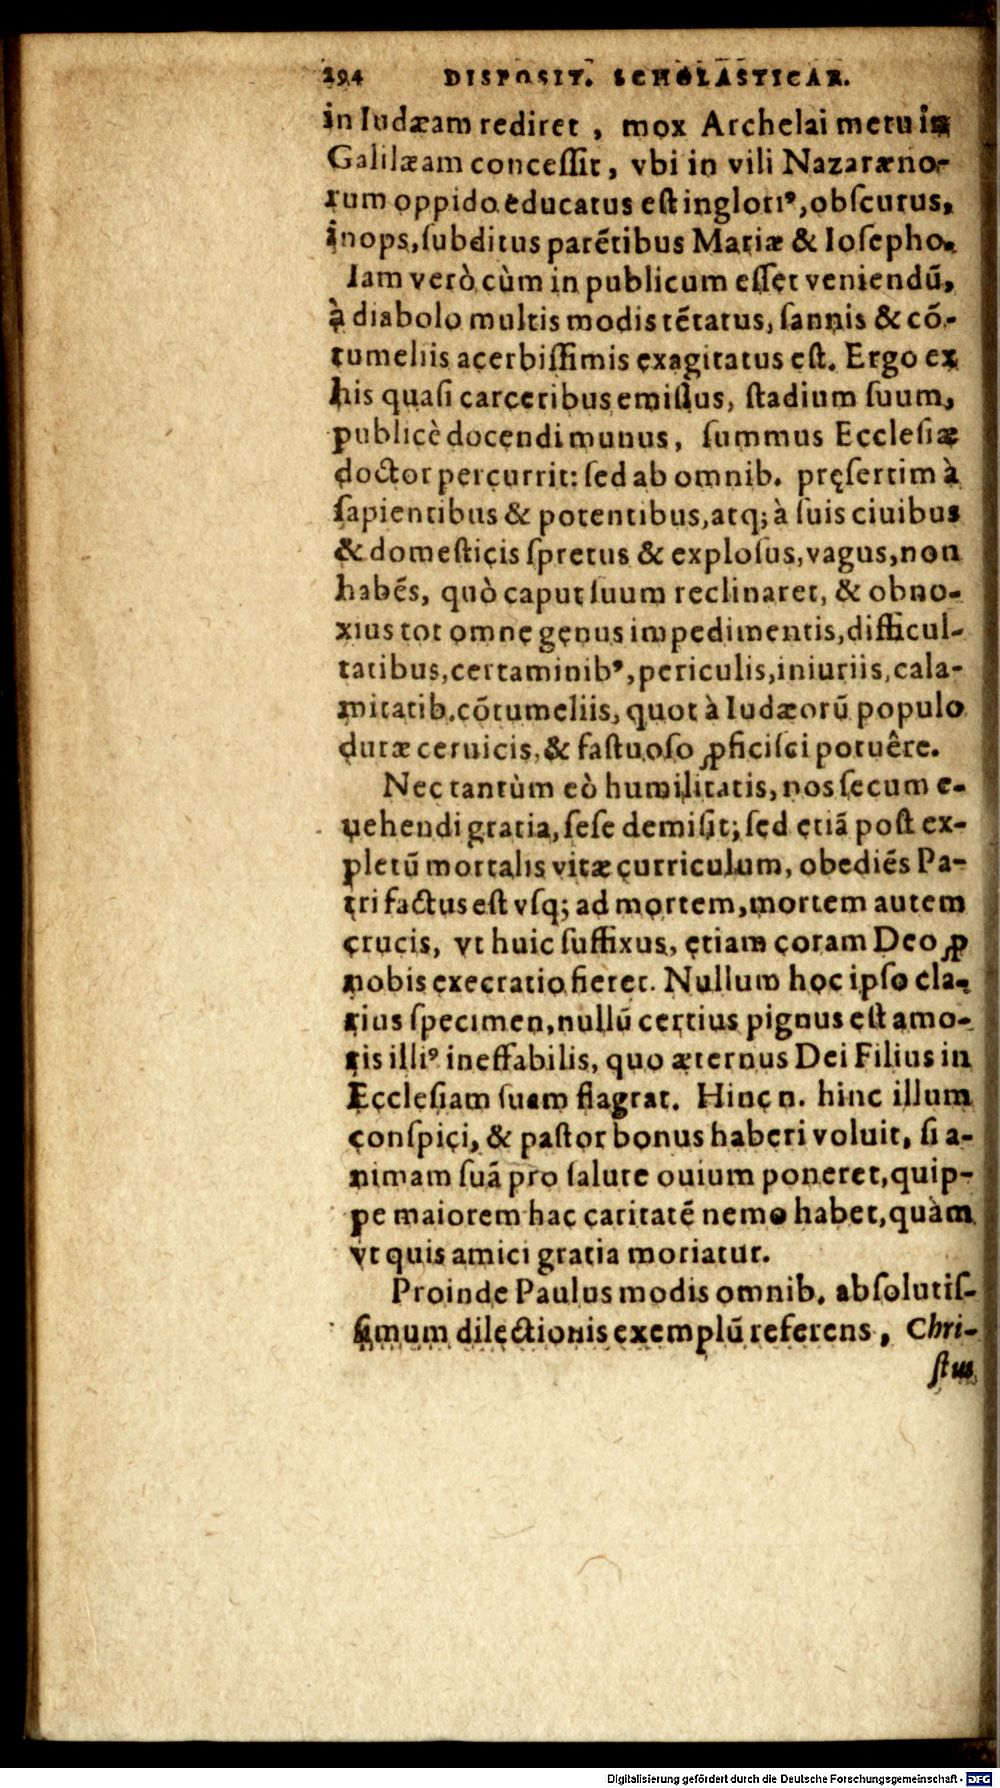 294 DISPOSIT. SCHOLASTICAR.
in Iudæam rediret , mox Archelai metu in
Galilæam conceſſit, vbi in vili Nazaræno-
rum oppido educatus eſt inglori⁹, obſcurus,
inops, ſubditus parẽtibus Mariæ & Ioſepho.
Iam verò cùm in publicum eſſet veniendũ,
à diabolo multis modis tẽtatus, ſannis & cõ-
tumeliis acerbiſſimis exagitatus eſt. Ergo ex
his quaſi carceribus emiſſus, ſtadium ſuum,
publicè docendi munus, ſummus Eccleſiæ
doctor percurrit: ſed ab omnib. pręſertim à
ſapientibus & potentibus, atq; à ſuis ciuibus
& domeſticis ſpretus & exploſus, vagus, non
habẽs, quò caput ſuum reclinaret, & obno-
xius tot omne genus impedimentis, difficul-
tatibus, certaminib⁹, periculis, iniuriis, cala-
mitatib. cõtumeliis, quot à Iudæorũ populo
duræ ceruicis, & faſtuoſo ꝓficiſci potuêre.
Nec tantùm eò humilitatis, nos ſecum e-
uehendi gratia, ſeſe demiſit; ſed etiã poſt ex-
pletũ mortalis vitæ curriculum, obediẽs Pa-
tri factus eſt vſq; ad mortem, mortem autem
crucis, vt huic ſuffixus, etiam coram Deo ꝓ
nobis execratio fieret. Nullum hoc ipſo cla-
rius ſpecimen, nullũ certius pignus eſt amo-
ris illi⁹ ineffabilis, quo æternus Dei Filius in
Eccleſiam ſuam flagrat. Hinc n. hinc illum
conſpici, & paſtor bonus haberi voluit, ſi a-
nimam ſuã pro ſalute ouium poneret, quip-
pe maiorem hac caritatẽ nemo habet, quàm
vt quis amici gratia moriatur.
Proinde Paulus modis omnib. abſolutiſ-
ſimum dilectionis exemplũ referens, Chri-
ſtus
Digitalisierung gefördert durch die Deutsche Forschungsgemeinschaft - DFG